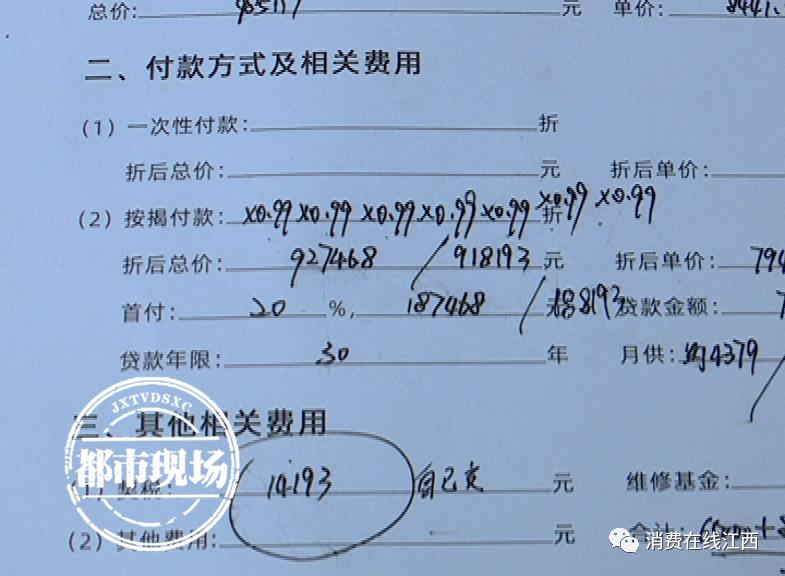 总价: 元 单价:
二、付款方式及相关费用
(1) 一次性付款: 折
折后总价: 元 折后单价:
(2) 按揭付款: ×0.99×0.99 ×0.99×0.99×0.99 折 ×0.99 ×0.99
折后总价: 927468 / 918193 元 折后单价: 794
首付: 20 %, 187468 / 188193 贷款金额:
贷款年限: 30 年 月供: 约4379
三、其他相关费用
JXTVDSXC
都市现场
(1) 契税: 14193 自己交 元 维修基金:
(2) 其他费用: 元 合计:
消费在线江西